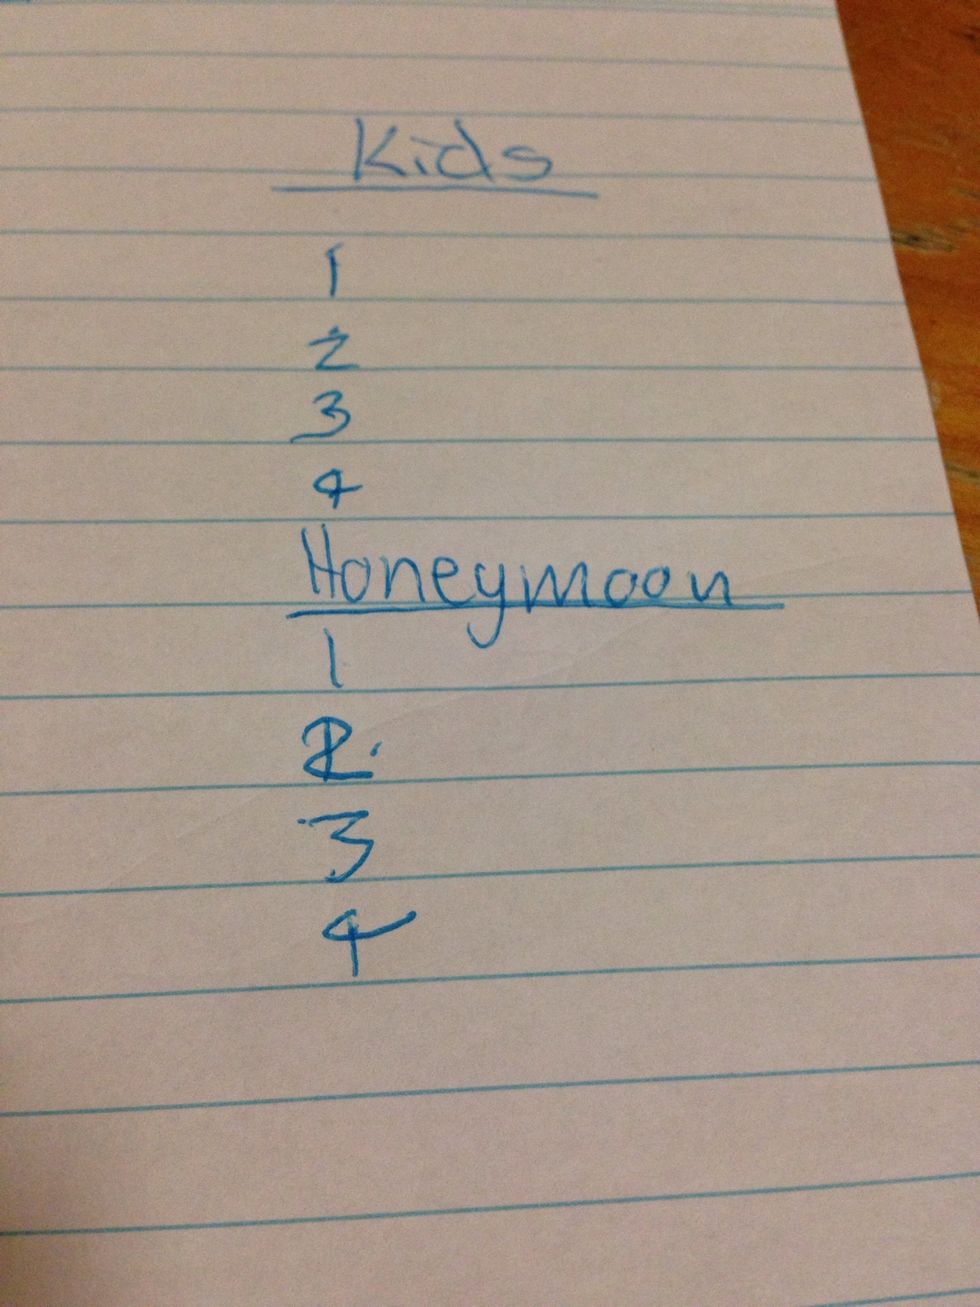 Kids
1
2
3
4
Honeymoon
1
2.
3
4